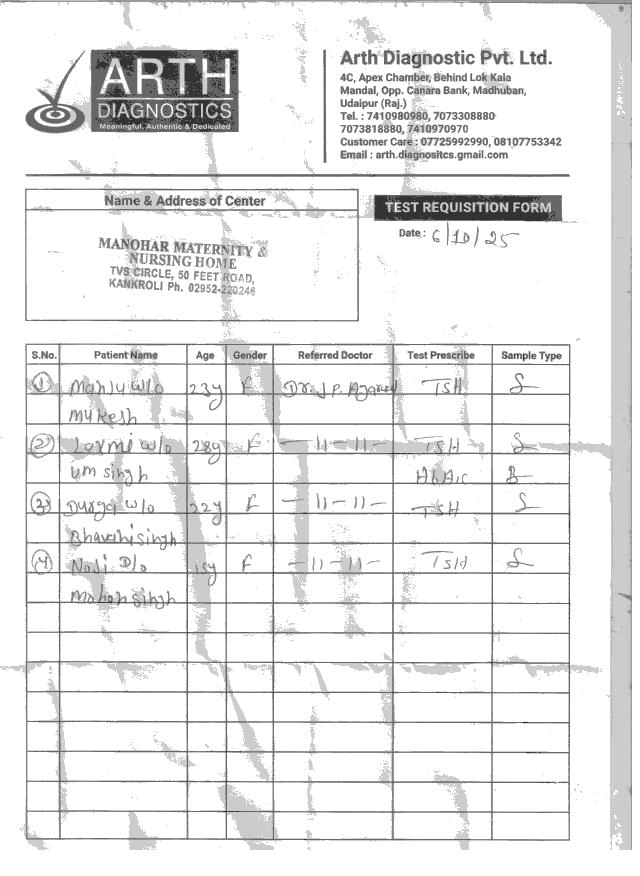 ARTH
DIAGNOSTICS
Meaningful, Authentic & Dedicated
Arth Diagnostic Pvt. Ltd.
4C, Apex Chamber, Behind Lok Kala
Mandal, Opp. Canara Bank, Madhuban,
Udaipur (Raj.)
Tel. : 7410980980, 7073308880
7073818880, 7410970970
Customer Care : 07725992990, 08107753342
Email : arth.diagnositcs.gmail.com
Name & Address of Center
MANOHAR MATERNITY &
NURSING HOME
TVS CIRCLE, 50 FEET ROAD,
KANKROLI Ph. 02952-220246
TEST REQUISITION FORM
Date : 6/10/25
S.No. Patient Name Age Gender Referred Doctor Test Prescribe Sample Type
1 Manju w/o 23y F Dr. J.P. Agarwal TSH S
mukesh
2 Laxmi w/o 28y F -11-11- TSH S
um singh HbA1c B
3 Durga w/o 22y F -11-11- TSH S
Bhavani singh
4 D/o 15y F -11-11- TSH S
mohan singh